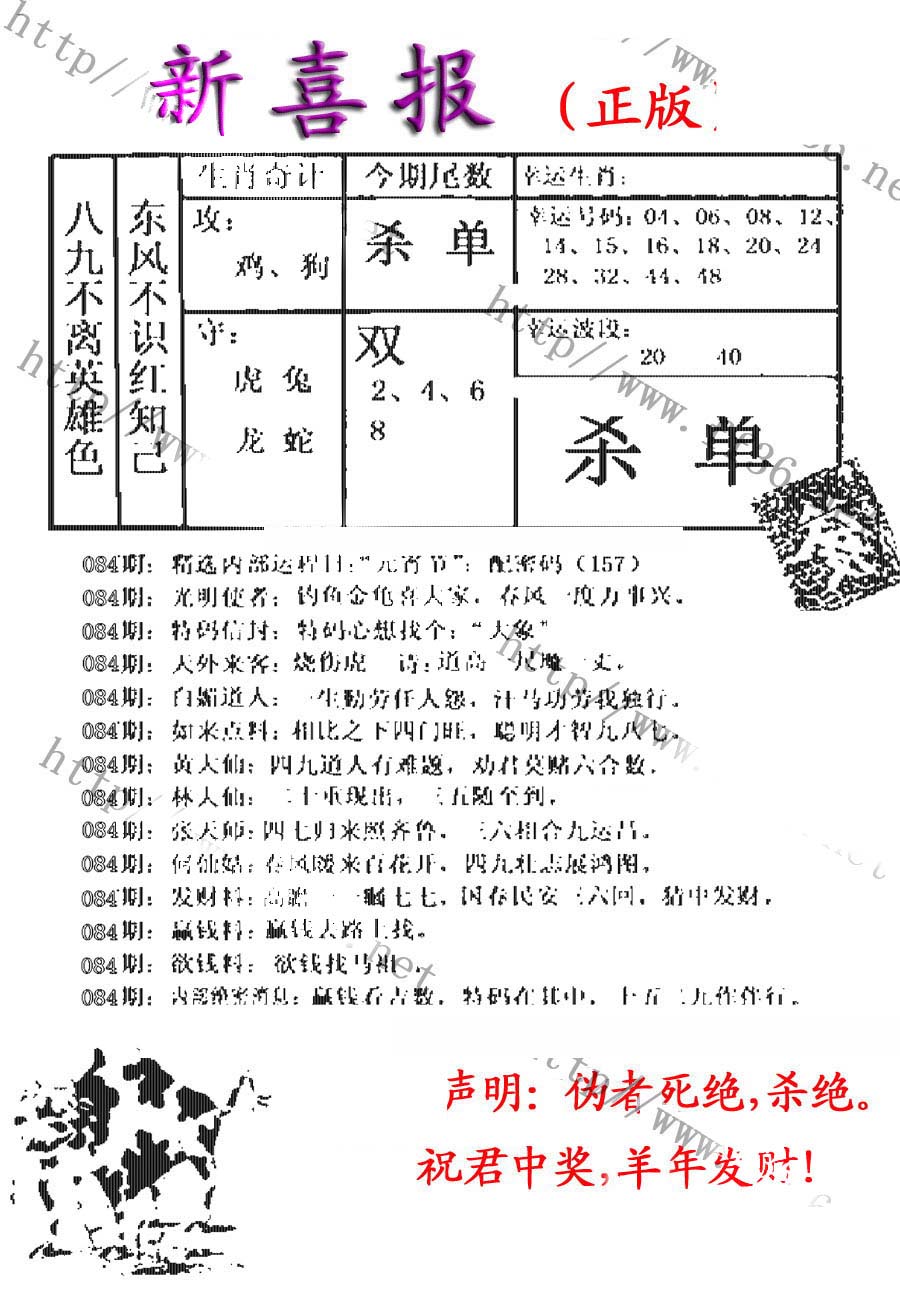 新喜报（正版）
八九不离英雄色
东风不识红知己
生肖奇计
攻：
鸡、狗
守：
虎 兔
龙 蛇
今期尾数
杀 单
双
2、4、6
8
幸运生肖：
幸运号码：04、06、08、12、
14、15、16、18、20、24
28、32、44、48
幸运波段：
20 40
杀 单
084期：精选内部运程日：“元宵节”：配密码（157）
084期：光明使者：钓鱼金龟喜大家，春风一度万事兴。
084期：特码信封：特码心想找个：“大象”
084期：天外来客：烧伤虎 诗：道高一尺魔一丈。
084期：白媚道人：一生勤劳任人怨，汗马功劳我独行。
084期：如来点料：相比之下四门旺，聪明才智九八七。
084期：黄大仙：四九道人有难题，劝君莫赌六合数。
084期：林大仙：二十重现出，三五随至到，
084期：张天师：四七归来照齐鲁，三六相合九运昌。
084期：何仙姑：春风暖来百花开，四九壮志展鸿图。
084期：发财料：高瞻一一瞩七七，国泰民安三六回，猜中发财。
084期：赢钱料：赢钱大路上找。
084期：欲钱料：欲钱找马祖。
084期：内部绝密消息：赢钱看吉数，特码在其中，十五二九伴伴行。
声明：伪者死绝，杀绝。
祝君中奖，羊年发财！